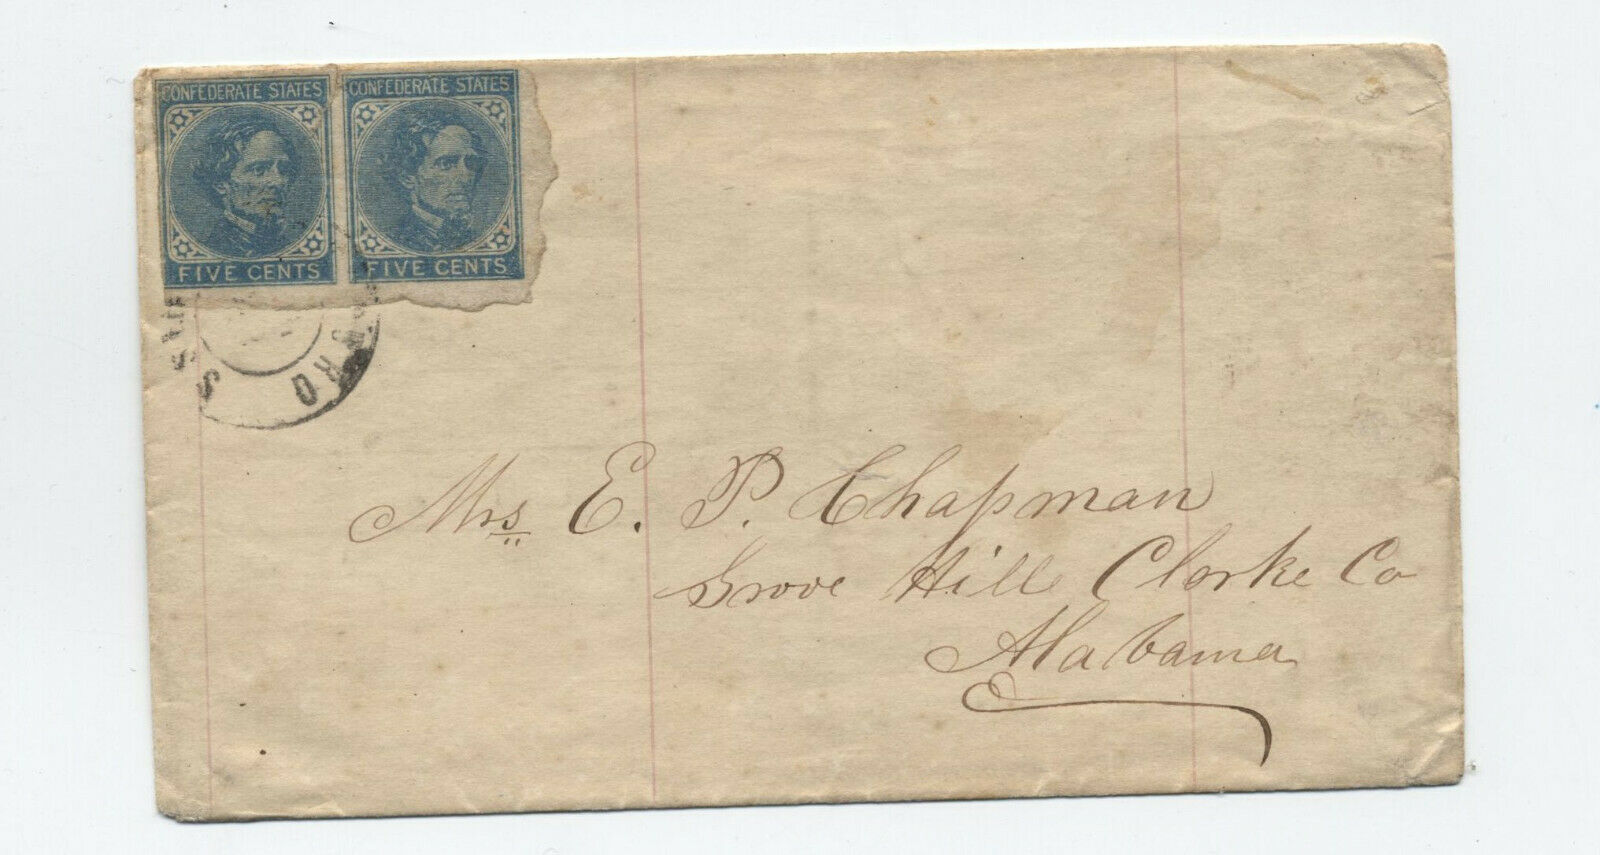 CONFEDERATE STATES CONFEDERATE STATES
FIVE CENTS FIVE CENTS
Mrs E. P. Chapman
Grove Hill Clarke Co
Alabama